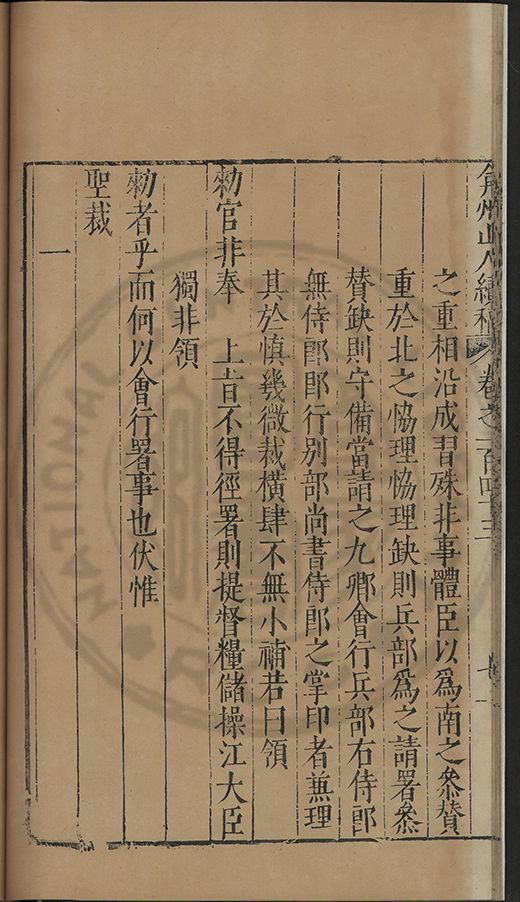 弇州山人續稿 卷之一百四十三 七
之重相沿成習殊非事體臣以爲南之叅贊
重於北之恊理恊理缺則兵部爲之請署叅
賛缺則守備當請之九卿會行兵部右侍郎
無侍郎郎行别部尚書侍郎之掌印者兼理
其於慎幾微裁橫肆不無小補若曰領
勑官非奉 上旨不得徑署則提督糧儲操江大臣
獨非領
勑者乎而何以會行署事也伏惟
聖裁
一